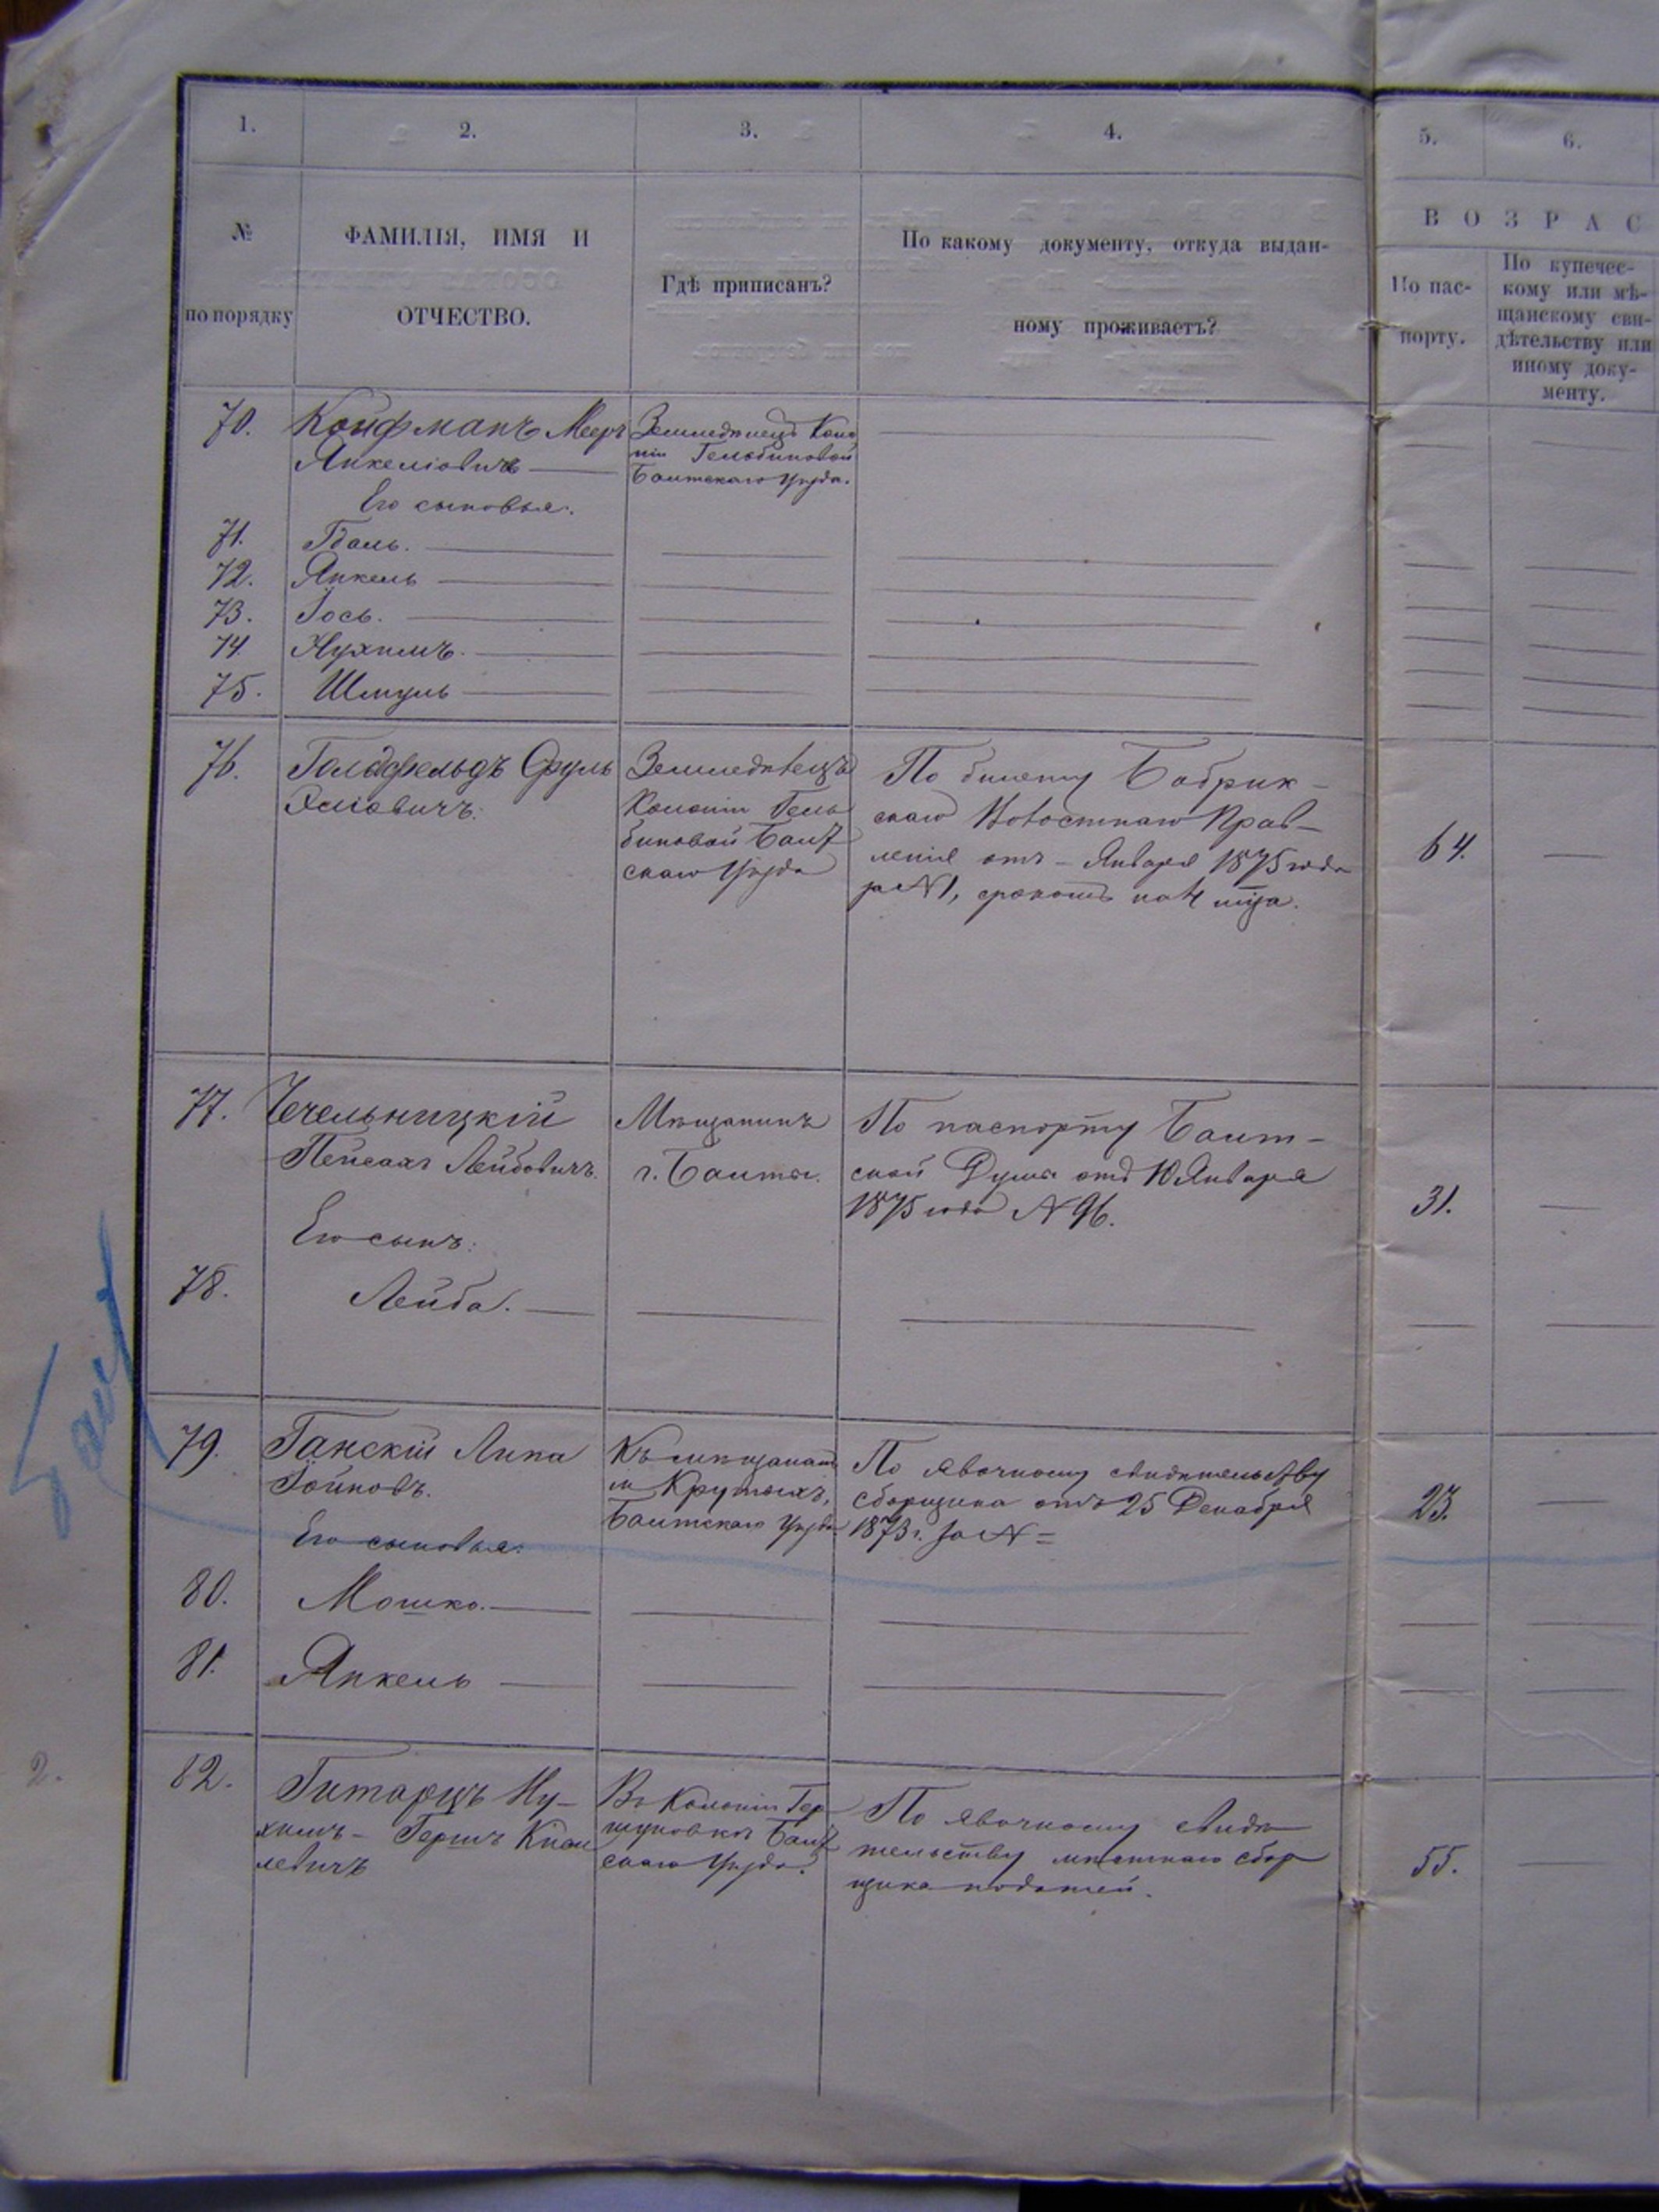 1. 2. 3. 4. 5. 6.
№ по порядку
ФАМИЛІЯ, ИМЯ И
ОТЧЕСТВО.
Гдѣ приписанъ?
По какому документу, откуда выдан-
ному проживаетъ?
ВОЗРАС
По пас-
порту.
По купечес-
кому или мѣ-
щанскому сви-
дѣтельству или
иному доку-
менту.
70. Койфманъ Мееръ
Янкеліовичъ
Земледѣлецъ Коло
ніи Гельбиновой
Балтскаго Уѣзда.
Его сыновья:
71. Гдаль.
72. Янкель
73. Іось.
74 Нухимъ.
75. Шмуль
76. Голдфельдъ Сруль
Земледѣлецъ
Колоніи Гель
биновой Балт
скаго Уѣзда
По билету Бобрик-
скаго Волостнаго Прав-
ленія отъ - Января 1875 года
за №1, срокомъ на 4 мѣца.
64.
77. Чечельницкій
Пейсахъ Лейбовичъ.
Мѣщанинъ
г. Балты.
По паспорту Балт-
ской Думы отъ 10 Января
1875 года № 96.
31.
Его сынъ:
78. Лейба.
79. Ганскій Липа
Къ мѣщанам
м Крутыхъ,
Балтскаго Уѣзда.
По явочному свидѣтельству
сборщика отъ 25 Декабря
1873 г. за № =
23.
Его сыновья:
80. Мошко.
81. Янкель
82. Гитарцъ Ну-
химъ - Гершъ
левичъ
Въ Колоніи Гер
шуновкѣ Балт
скаго Уѣзда.
По явочному свидѣ
тельству мѣстнаго сбор
щика податей.
55.
2.